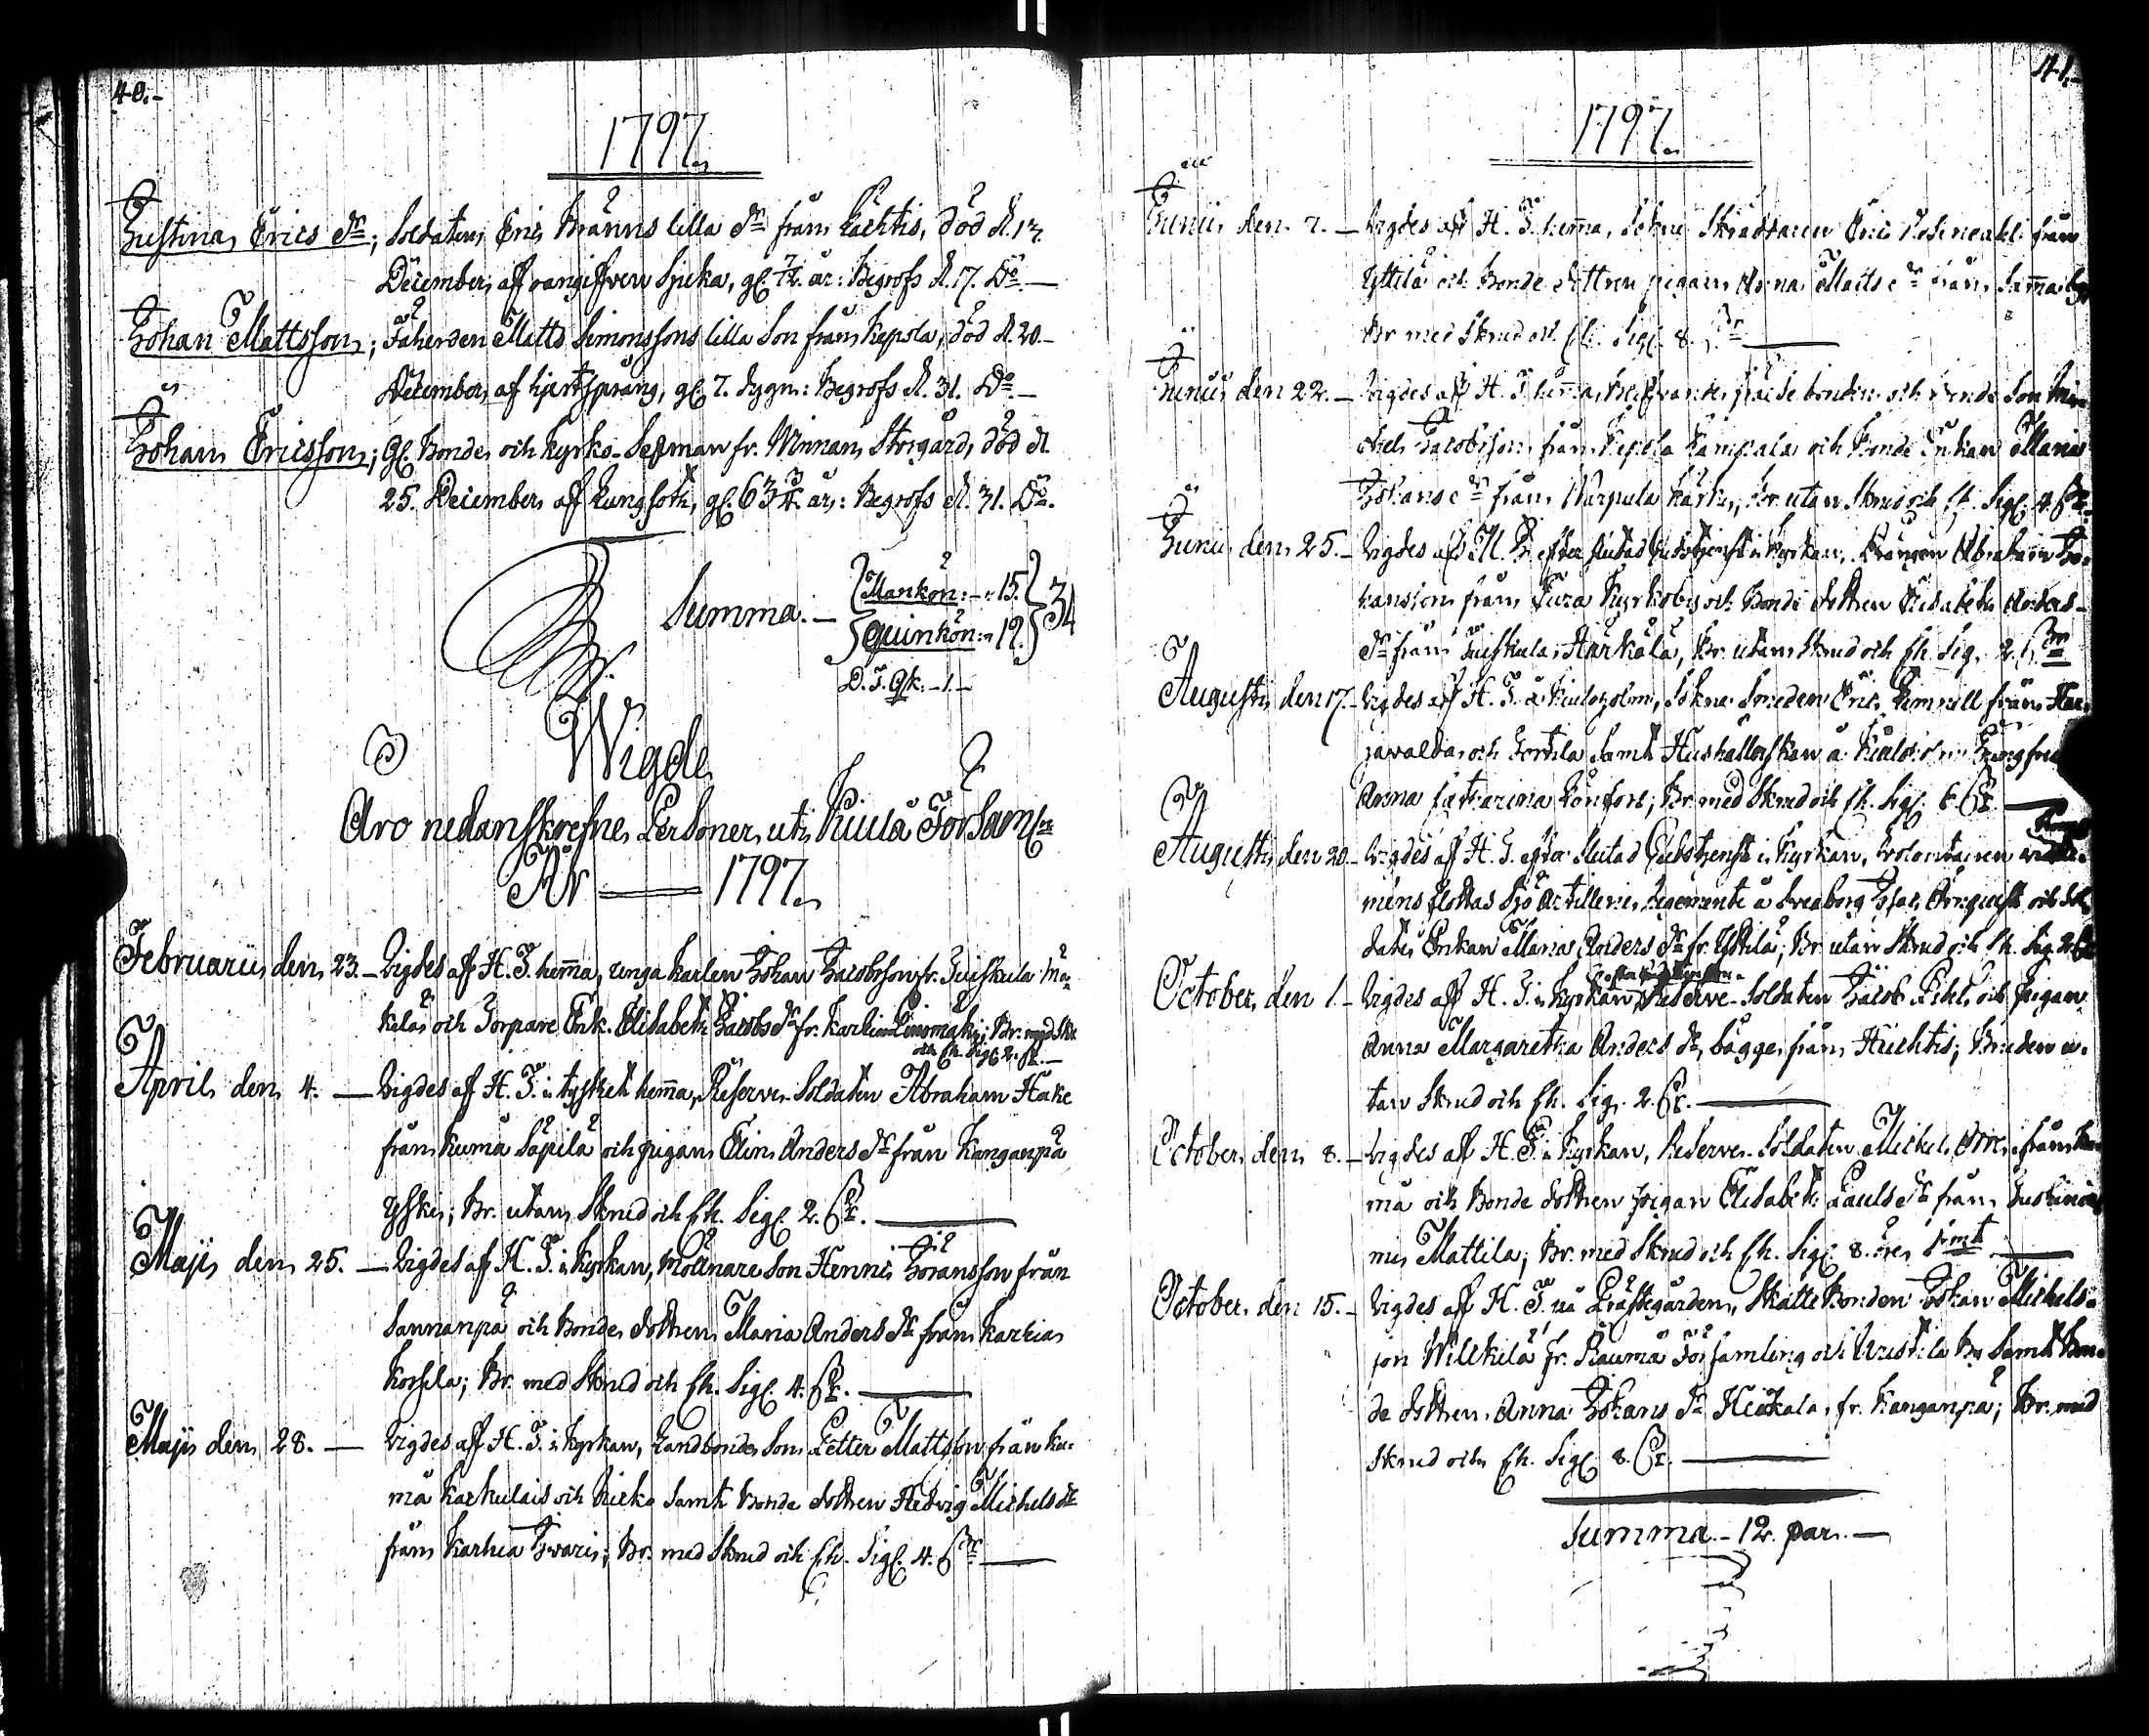 40.-
1797.
Justina Erics dr; Soldaten Eric Branns lilla dr från Kächtis, död d. 13.
December af oangifven Sjuka, gl. år: Begrofs d. 17. Do.—
Johan Mattsson; Fäherden Matts Simonssons lilla Son från Kepola, död d. 20.—
December, af hjertsprång, gl. 7. dygn: Begrofs d. 31. Do.—
Johan Ericsson; gl. Bonde och Kyrko-Sexman fr. Winnari Storgård, död d.
25. December af Lungsoth, gl. 63 år: Begrofs d. 31. Do.
Summa.— Mankön:—15.
Quinkön: 19. 34
D. J. Qk.—1.—
Wigde
Äro nedanskrefne Personer uti Kiula Församl.
År — 1797.
Februarii den 23.— Vigdes aff H. J. hemma, unga karlen Johan Jacobsson fr. Tuiskula Mä-
kelä och Torpare Enk. Elisabeth Jacobs dr fr. Karhia Linomäki; Br. med Skr.
och Ch. Sigl. 2. ßr.—
April den 4.— Vigdes af H. J. i tysthet hemma, Reserve Soldaten Abraham Hake
från Kumå Säpilä och pigan Elin Anders dr från Kanganpä
Yski; Br. utan Skrud och Ch. Sigl. 2. ßr.—
Maji den 25.— Vigdes aff H. J. i Kyrkan, Mölnare Son Henric Göransson från
Sannanpä och Bonde dottren Maria Anders dr från Karhia
Korsila; Br. med Skrud och Ch. Sigl. 4. ßr.—
Maji den 28.— Vigdes aff H. J. i Kyrkan, Landbonde Son Petter Mattson från Ku-
må Karhulais och Ricko samt Bonde dottren Hedvig Michels dr
från Karhia Iwari; Br. med Skrud och Ch. Sigl. 4. ßr—
41.-
1797.
Junii den 7.— Vigdes aff H. J. hemma, Sokne Skräddaren Eric från
Yttilä och Bonde dottren pigan Anna Matts dr från
Br med Skrud och Ch. Sigl. 8. ßr—
Junii den 22.— Vigdes aff H. J. hemma, bonden och Bonde Son Mi-
chel Jacobsson från Kepola Kampala och Bonde Enkan Maria
Johans dr från Nurpula Kärki, Br. utan Skrud och Ch. Sigl. 4. ßr.
Junii den 25.— Vigdes aff efter slutad Gudstjenst i Kyrkan, Drängen Abraham Jo-
hansson från Eura Kyrkoby och Bonde dottren Elisabeth Anders
dr från Tuiskula Härkälä, Br. utan Skrud och Ch. Sig. 2. ßr
Augusti den 17.— Vigdes aff H. J. å Kiuloholm, Sokne Smeden Eric från Har-
javalda och Torttila samt Hushållerskan å Kiuloholm Jungfru
Anna Catharina Könfors; Br. med Skrud och Ch. Sigl. 6. ßr.—
Augusti den 20.— Vigdes af H. J. efter slutad Gudstjenst i Kyrkan, Volontairen
mens flottas Sjö Artillerie Regemente å Sveaborg Isac Örnqvist och Sol-
date Enkan Maria Anders dr fr. Yttilä; Br. utan Skrud och Ch. Sig. 2 ßr
October den 1.— Vigdes aff H. J. i Kyrkan, Reserve-Soldaten Jacob och Pigan
Anna Margaretha Anders dr, bägge från Hiuchtis; Bruden u-
tan Skrud och Ch. Sig. 2. ßr.—
October den 8.— Vigdes aff H. J. i Kyrkan, Reserve-Soldaten Michel Orre från Ku-
må och Bonde dottren pigan Elisabeth Pauls dr från
mi Mattila; Br. med Skrud och Ch. Sigl. 8. öre Smt—
October den 15.— Vigdes aff H. J. uå Prästegården, Skatte Bonden Johan Michels-
son Willkilä fr. Raumå Församling och by samt Bon-
de dottren Anna Johans dr Heickala fr. Kanganpä; Br. med
Skrud och Ch. Sigl. 8. ßr.—
Summa.—12. par.—